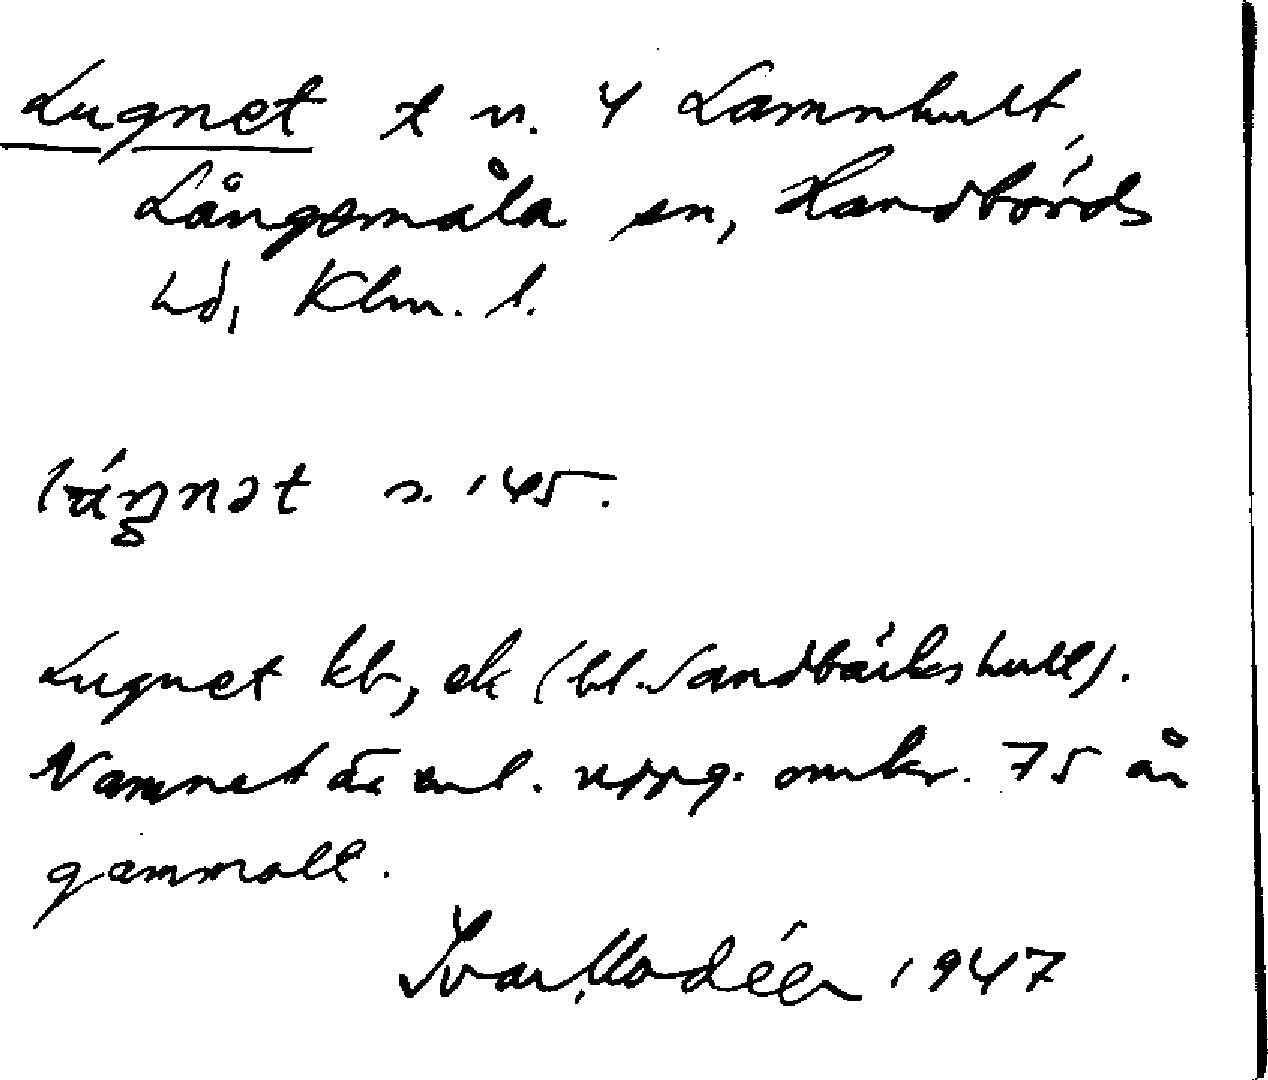 Lugnet t n. 4 Lamnhult,
Långemåla sn, Handbörds
hd, Klm. l.
s. 145.
Lugnet kb, ek (bl. Sandbäckshult).
Namnet är enl. uppg. omkr. 75 år
gammalt.
Ivar Modéer 1947